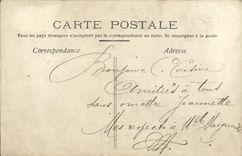 CARTE POSTALE
Tous les pays étrangers n'acceptent pas la correspondance au recto. Se renseigner à la poste
Correspondance
Adresse
Bonjour Cousine
Amitiés à tous
sans omettre Jeannette
Mes respects à Mlle